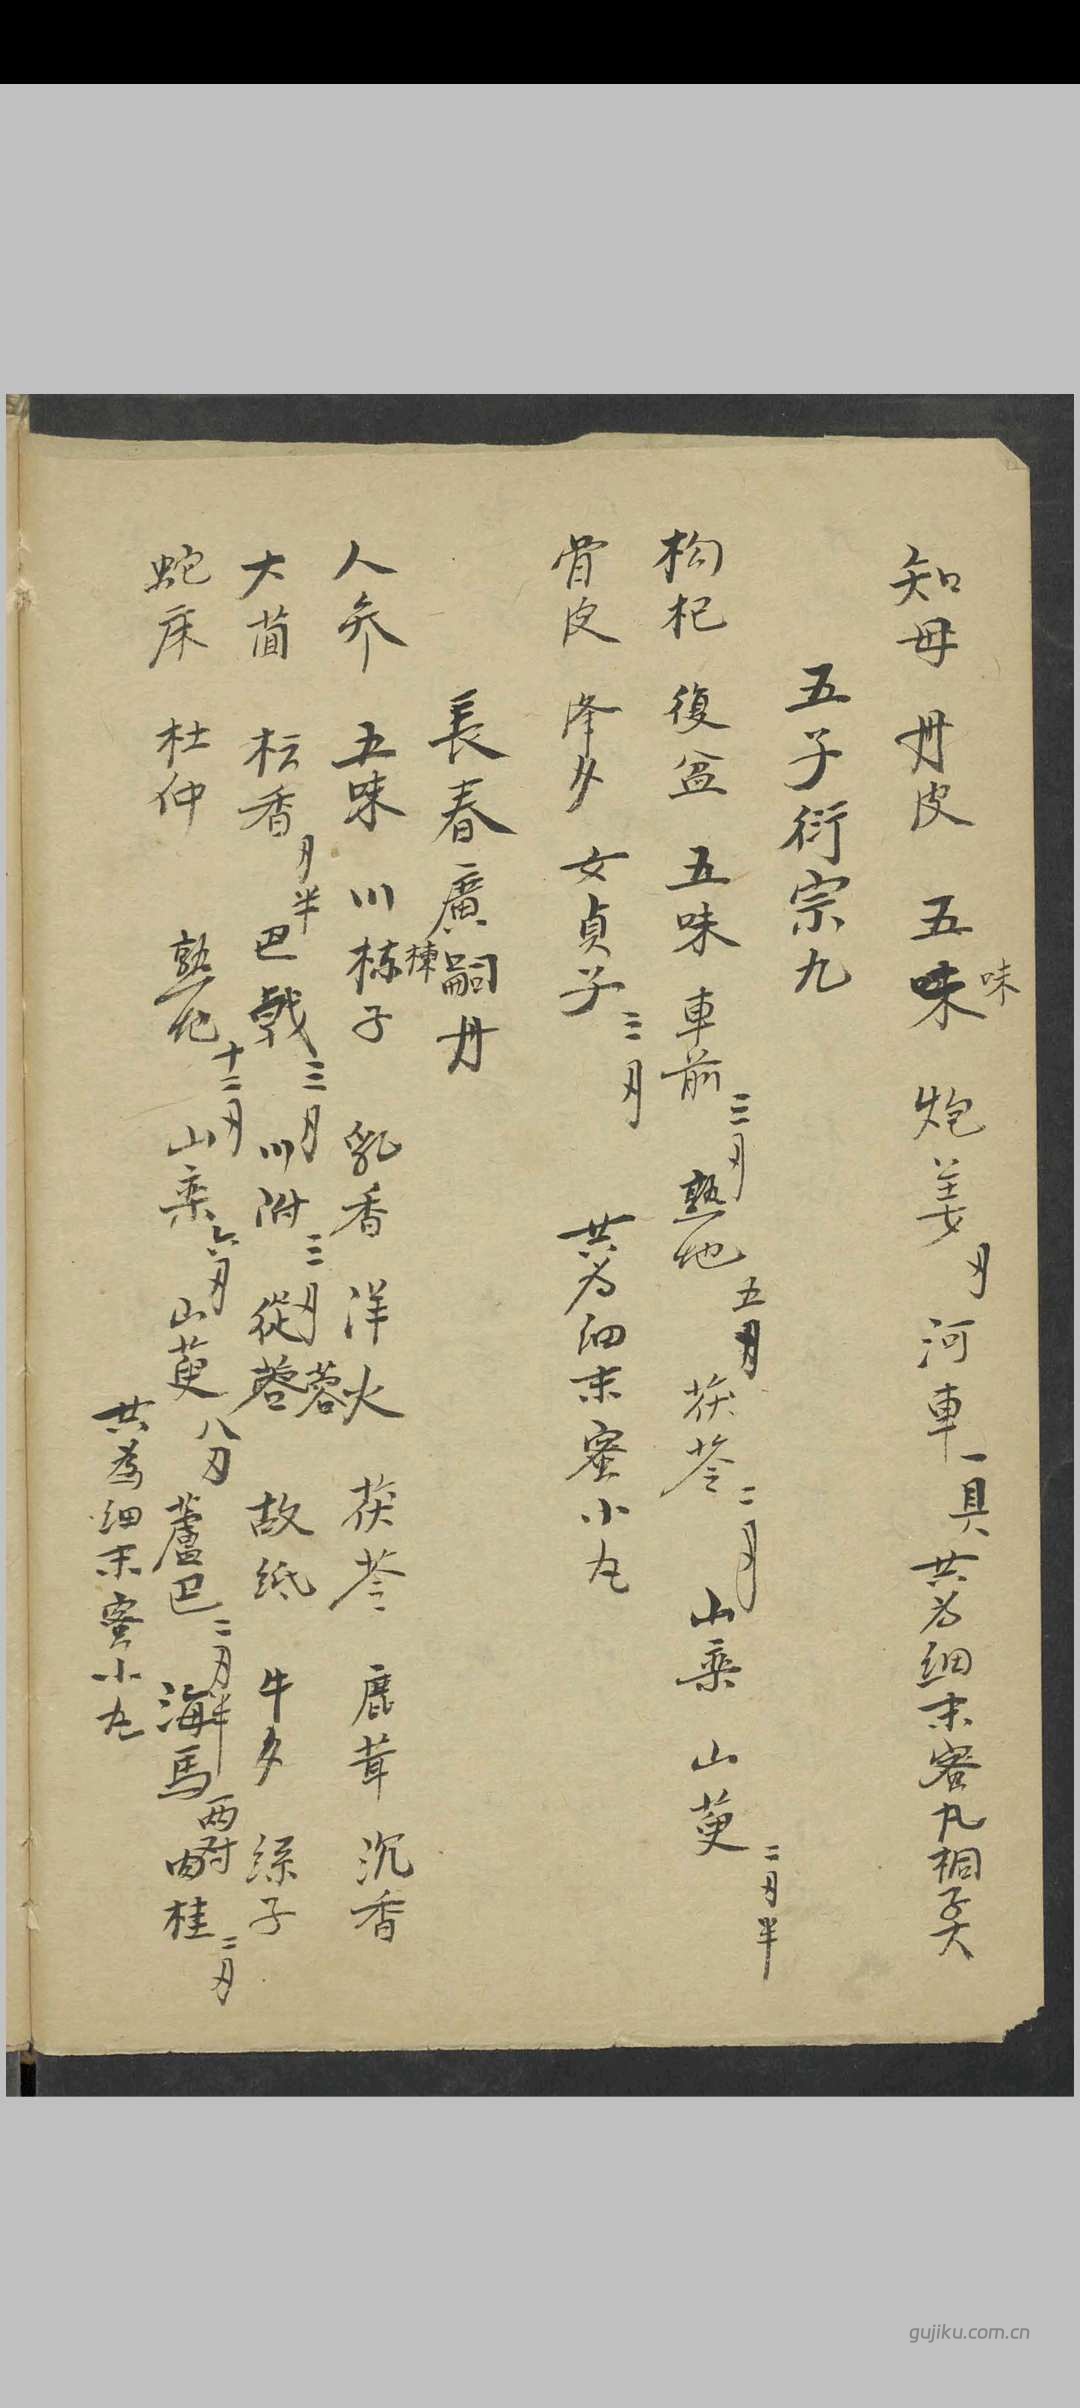 知母 丹皮 五味 味 炮姜 月 河車 一具 共为细末蜜丸桐子大
五子衍宗九
枸杞 復盆 五味 車前 三月 熟地 五月 茯苓 二月 山藥 山萸 二月半
骨皮 夕 女貞子 三月 共为细末蜜小丸
長春廣嗣丹
人参 五味 川栋子 楝 乳香 洋火 茯苓 鹿茸 沉香
大茴 枟香 月半 巴戟 三月 川附 三月 從蓉 蓉 故纸 牛夕 絲子
蛇床 杜仲 熟地 十二月 山藥 六月 山萸 八月 蘆巴 二月半 海馬 两對 肉桂 二月
共為细末蜜小丸
gujiku.com.cn